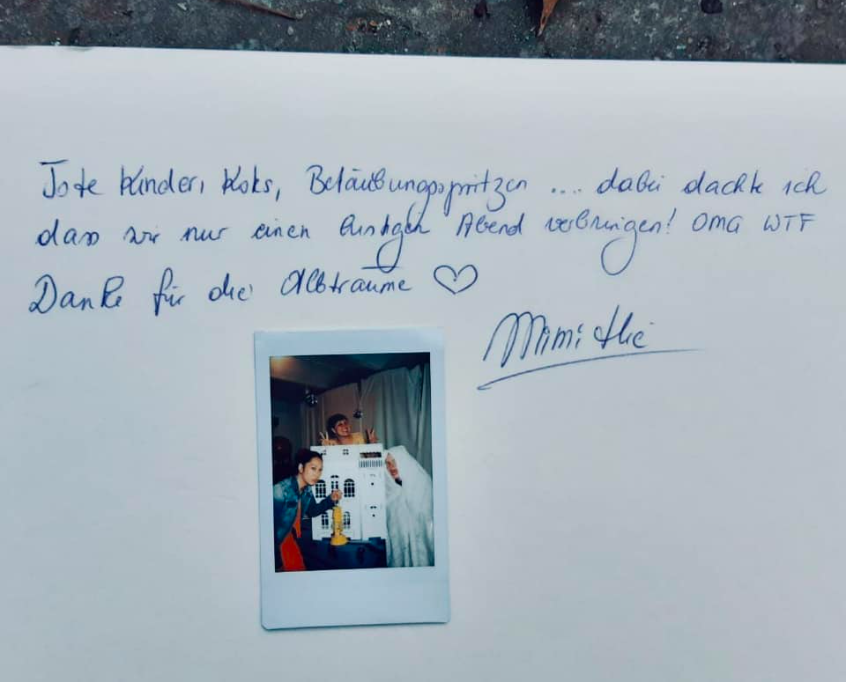 Tote Kinder, Koks, Betäubungsspritzen .... dabei dachte ich
dass wir nur einen lustigen Abend verbringen! OMG WTF
Danke für die Albträume ♡
Mimi